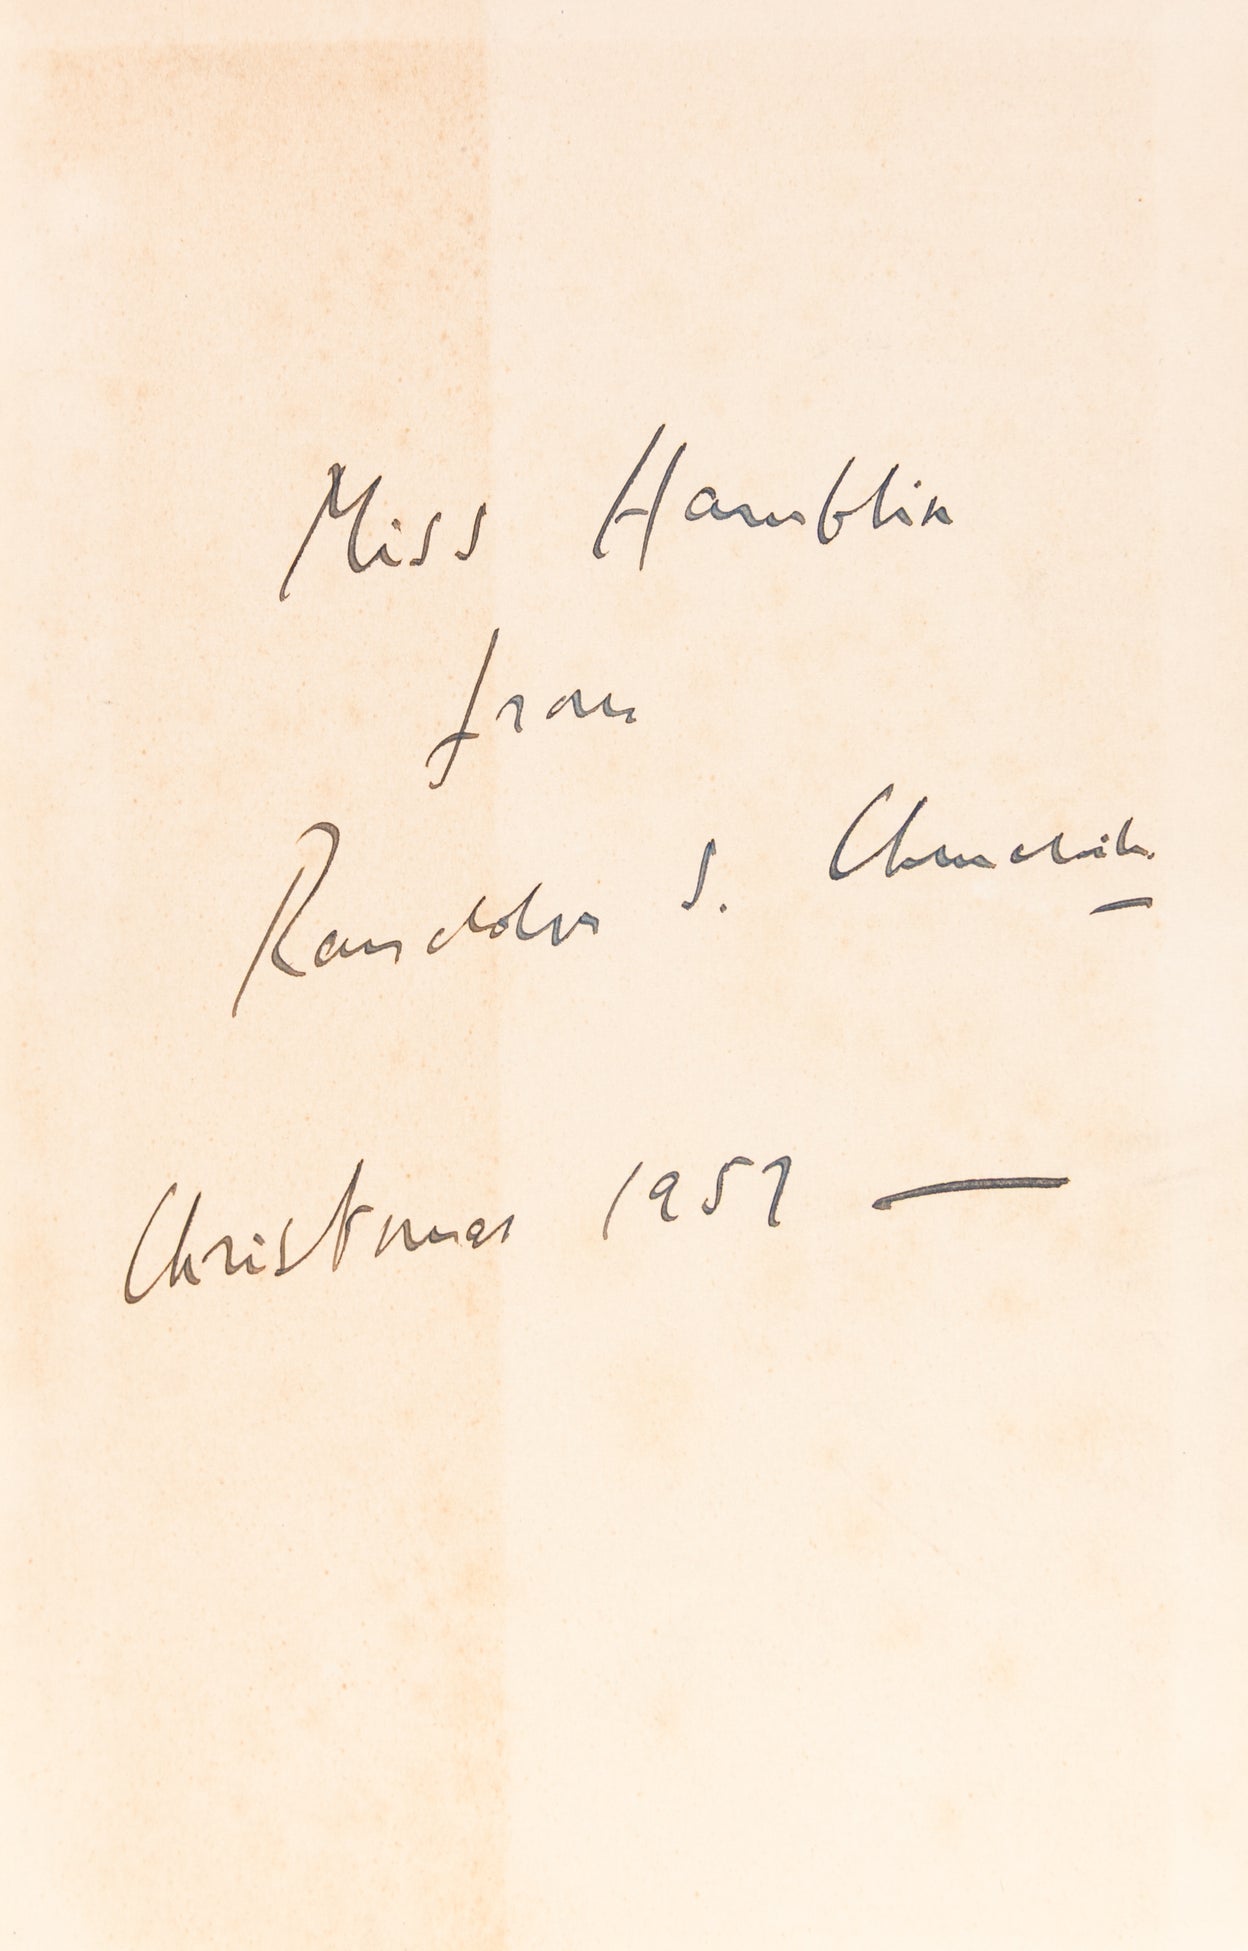 Miss Hamblin
from
Randolph S. Churchill.
Christmas 1957 —